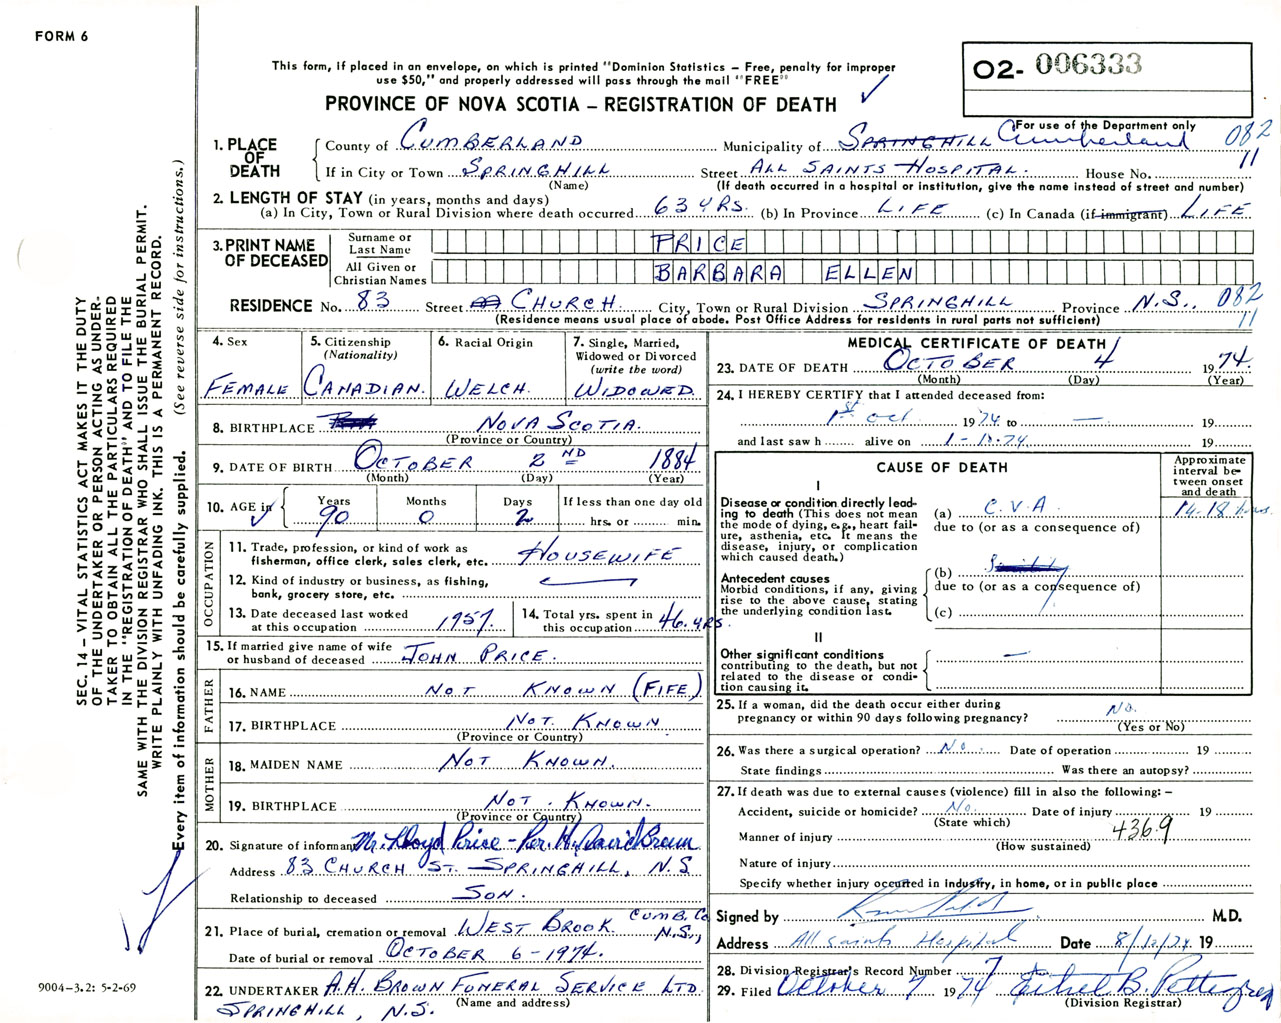 FORM 6
This form, if placed in an envelope, on which is printed "Dominion Statistics – Free, penalty for improper
use $50," and properly addressed will pass through the mail "FREE"
PROVINCE OF NOVA SCOTIA – REGISTRATION OF DEATH
O2- 006333
For use of the Department only
1. PLACE OF DEATH
County of CUMBERLAND Municipality of SPRINGHILL Cumberland 082
If in City or Town SPRINGHILL Street ALL SAINTS HOSPITAL. House No. 11
(Name) (If death occurred in a hospital or institution, give the name instead of street and number)
2. LENGTH OF STAY (in years, months and days)
(a) In City, Town or Rural Division where death occurred 63 YRS. (b) In Province LIFE (c) In Canada (if immigrant) LIFE
3. PRINT NAME OF DECEASED
Surname or Last Name PRICE
All Given or Christian Names BARBARA ELLEN
RESIDENCE No. 83 Street CHURCH. City, Town or Rural Division SPRINGHILL Province N.S. 082
(Residence means usual place of abode. Post Office Address for residents in rural parts not sufficient) 11
4. Sex
FEMALE
5. Citizenship
(Nationality)
CANADIAN.
6. Racial Origin
WELCH.
7. Single, Married,
Widowed or Divorced
(write the word)
WIDOWED.
8. BIRTHPLACE NOVA SCOTIA.
(Province or Country)
9. DATE OF BIRTH OCTOBER 2ND 1884
(Month) (Day) (Year)
10. AGE in
Years Months Days If less than one day old
90 0 2 hrs. or min.
OCCUPATION
11. Trade, profession, or kind of work as
fisherman, office clerk, sales clerk, etc. HOUSEWIFE
12. Kind of industry or business, as fishing,
bank, grocery store, etc.
13. Date deceased last worked
at this occupation 1957.
14. Total yrs. spent in
this occupation 46. YRS.
15. If married give name of wife
or husband of deceased JOHN PRICE.
FATHER
16. NAME NOT KNOWN (FIFE)
17. BIRTHPLACE NOT KNOWN
(Province or Country)
MOTHER
18. MAIDEN NAME NOT KNOWN.
19. BIRTHPLACE NOT. KNOWN.
(Province or Country)
20. Signature of informant Mr. Lloyd Price - Per. H. David Brown
Address 83 CHURCH ST. SPRINGHILL, N.S
Relationship to deceased SON.
21. Place of burial, cremation or removal WEST BROOK CUMB. Co N.S.,
Date of burial or removal OCTOBER 6-1974.
22. UNDERTAKER A.H. BROWN FUNERAL SERVICE LTD.
(Name and address)
SPRINGHILL, N.S.
MEDICAL CERTIFICATE OF DEATH
23. DATE OF DEATH OCTOBER 4 1974.
(Month) (Day) (Year)
24. I HEREBY CERTIFY that I attended deceased from:
1st oct 1974 to — 19
and last saw h alive on 1-10-74 19
CAUSE OF DEATH
Approximate
interval be-
tween onset
and death
I
Disease or condition directly lead-
ing to death (This does not mean
the mode of dying, e.g., heart fail-
ure, asthenia, etc. It means the
disease, injury, or complication
which caused death.)
(a) C.V.A 14-18 hours
due to (or as a consequence of)
Antecedent causes
Morbid conditions, if any, giving
rise to the above cause, stating
the underlying condition last.
(b)
due to (or as a consequence of)
(c)
II
Other significant conditions
contributing to the death, but not
related to the disease or condi-
tion causing it.
—
25. If a woman, did the death occur either during
pregnancy or within 90 days following pregnancy? No.
(Yes or No)
26. Was there a surgical operation? No Date of operation 19
State findings Was there an autopsy?
27. If death was due to external causes (violence) fill in also the following: –
Accident, suicide or homicide? No. Date of injury 19
(State which)
Manner of injury 436.9
(How sustained)
Nature of injury
Specify whether injury occurred in industry, in home, or in public place
Signed by M.D.
Address All Saints Hospital Date 8/10/74 19
28. Division Registrar's Record Number 7
29. Filed October 7 1974 Ethel B. Pettigrew
(Division Registrar)
SEC. 14 – VITAL STATISTICS ACT MAKES IT THE DUTY
OF THE UNDERTAKER OR PERSON ACTING AS UNDER-
TAKER TO OBTAIN ALL THE PARTICULARS REQUIRED
IN THE "REGISTRATION OF DEATH" AND TO FILE THE
SAME WITH THE DIVISION REGISTRAR WHO SHALL ISSUE THE BURIAL PERMIT.
WRITE PLAINLY WITH UNFADING INK. THIS IS A PERMANENT RECORD.
Every item of information should be carefully supplied. (See reverse side for instructions.)
9004-3.2: 5-2-69